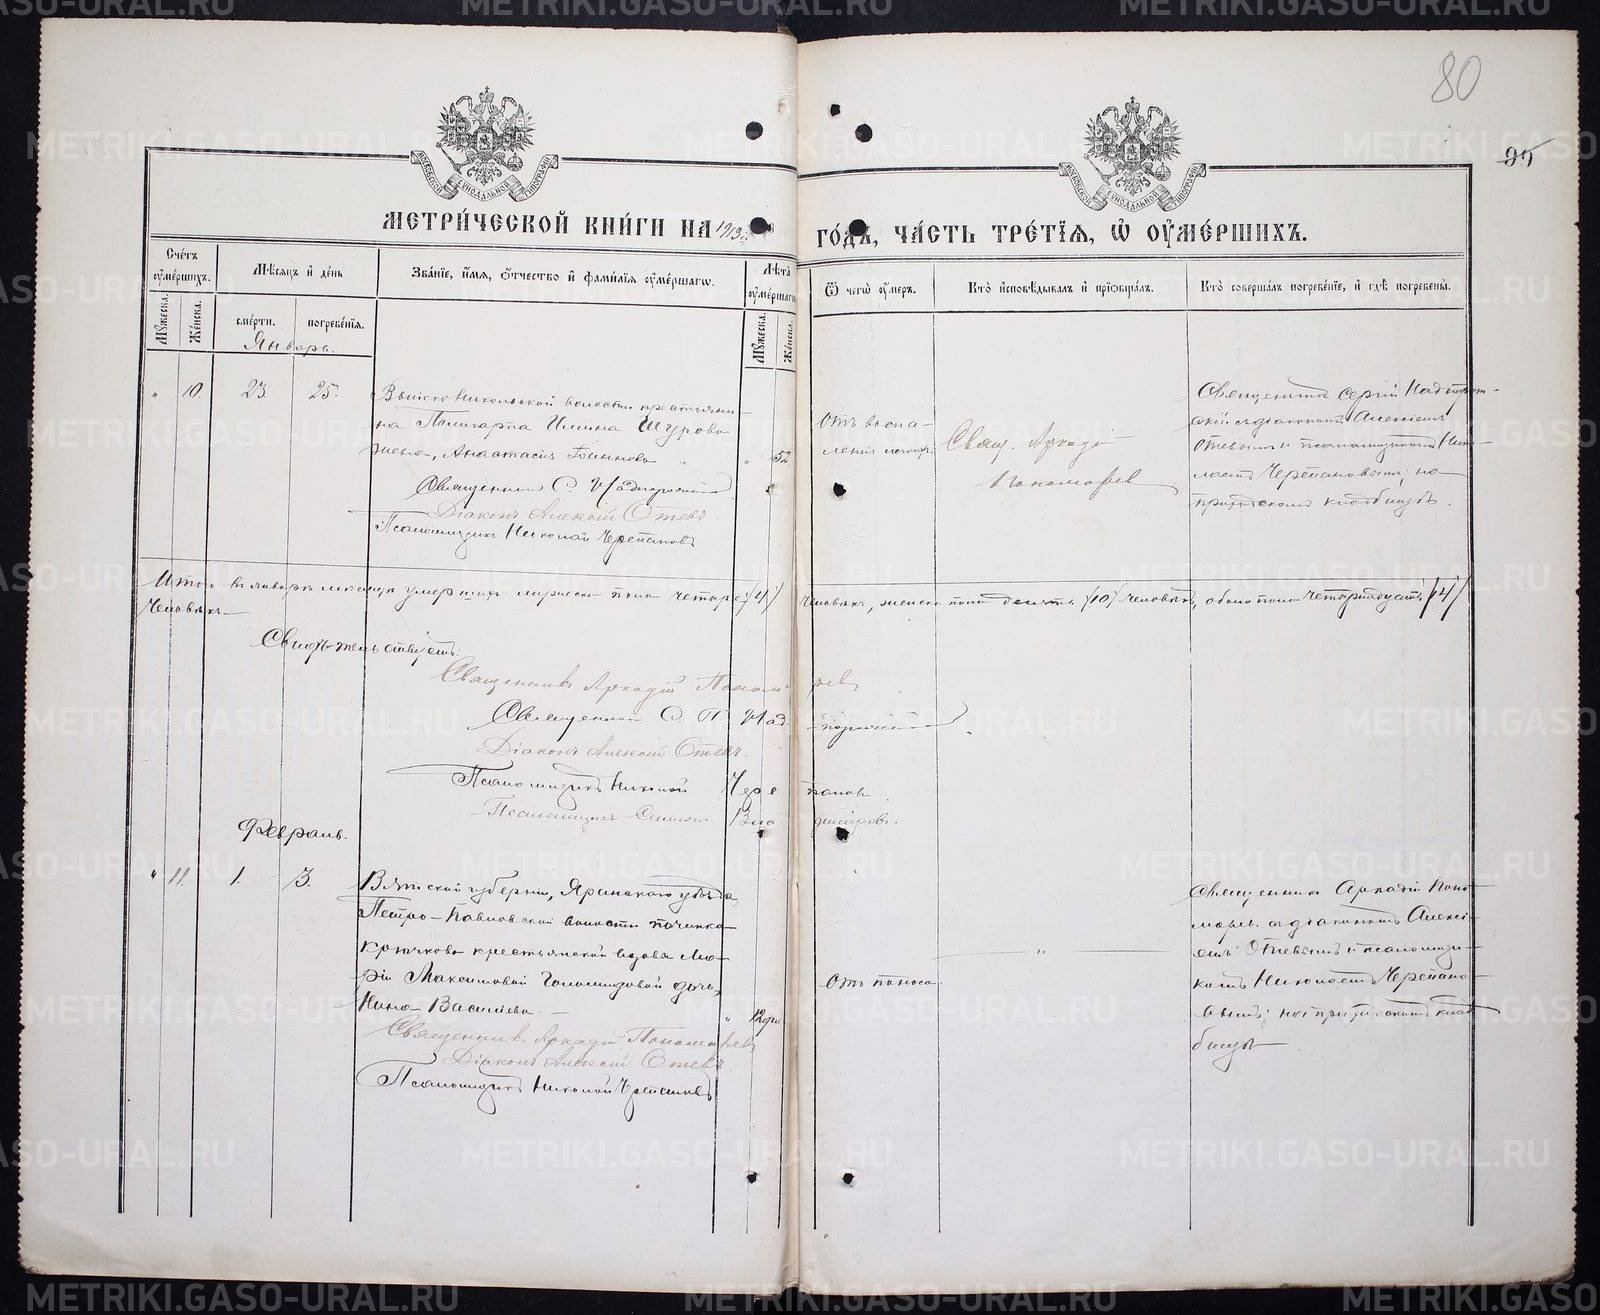 80
95
МОСКОВСКОЙ СѴНОДАЛЬНОЙ ТИПОГРАФІИ
МОСКОВСКОЙ СѴНОДАЛЬНОЙ ТИПОГРАФІИ
МЕТРИ́ЧЕСКОЙ КНИ́ГИ НА 1913
ГО́ДЪ, ЧА́СТЬ ТРЕ́ТІѦ, Ѡ ОУМЕ́РШИХЪ.
Сче́тъ оуме́ршихъ.
Мужеска.
Же́нска.
Мѣсяцъ и де́нь
сме́рти.
погребе́нїя.
Январь.
Зва́нїе, и́мя, о́тчество и фами́лїя оуме́ршагѡ.
Лѣта оуме́ршагѡ
Мужеска.
Же́нска.
Ѿ чегѡ̀ оу́меръ.
Кто̀ исповѣ́дывалъ и прїѡбща́лъ.
Кто̀ соверша́лъ погребе́нїе, и гдѣ̀ погребе́ны.
" 10. 23. 25.
Николаевской волости крестьяни-
на Поликарпа Ильина Щурова
жена, Анастасія Іоаннова " 52.
Священникъ С. Надпорожскій
Діаконъ Алексій Отевъ.
Псаломщикъ Николай Черепановъ
Отъ воспа-
ленія легкихъ.
Свящ. Аркадій
Пономаревъ
Священникъ Сергій Надпорож-
скій съ діакономъ Алексіемъ
Отевымъ и псаломщикомъ Нико-
лаемъ Черепановымъ; на
приходскомъ кладбищѣ.
Итого въ январѣ мѣсяцѣ умершихъ мужеска пола четыре /4/
человѣка, женска пола десять /10/ человѣкъ, обоего пола четырнадцать /14/
человѣкъ.
Свидѣтельствуемъ:
Священникъ Аркадій Пономаревъ
Священникъ С. П. Надпорожскій
Діаконъ Алексій Отевъ.
Псаломщикъ Николай Черепановъ
Псаломщикъ Владиміровъ.
Февраль.
" 11. 1. 3.
Вятской губерніи, Яранскаго уѣзда,
Петро-Павловской волости починка
Крючкова крестьянской вдова Ма-
ріи Максимовой дочь,
Нина Васильева. " 12 дн.
Священникъ Аркадій Пономаревъ
Діаконъ Алексій Отевъ.
Псаломщикъ Николай Черепановъ
Отъ поноса.
"
Священникъ Аркадій Поно-
маревъ съ діакономъ Алексі-
емъ Отевымъ и псаломщи-
комъ Николаемъ Черепано-
вымъ; на приходскомъ клад-
бищѣ
METRIKI.GASO-URAL.RU